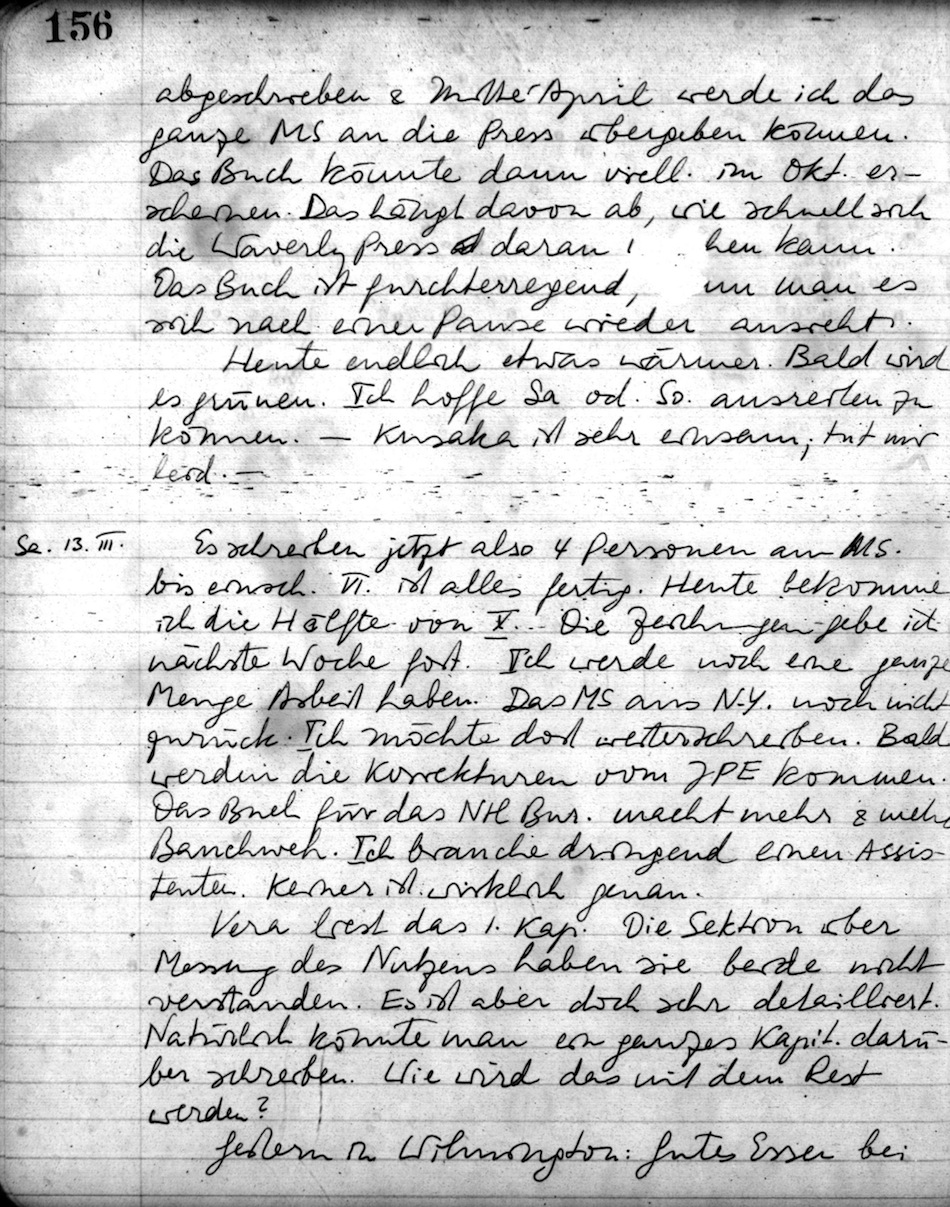 156
abgeschrieben & Mitte April werde ich das
ganze MS an die Press übergeben können.
Das Buch könnte dann viell. im Okt. er-
scheinen. Das hängt davon ab, wie schnell sich
die Waverly Press daran hen kann.
Das Buch ist furchterregend, nn man es
sich nach einer Pause wieder ansieht.
Heute endlich etwas wärmer. Bald wird
es grünen. Ich hoffe Sa od. So. ausreiten zu
können. — Kusaka ist sehr einsam; tut mir
leid. —
Sa. 13. III. Es schreiben jetzt also 4 Personen am MS.
bis einsch. VI. ist alles fertig. Heute bekomme
ich die Hälfte von X. Die Zeichnungen gebe ich
nächste Woche fort. Ich werde noch eine ganze
Menge Arbeit haben. Das MS aus N.Y. noch nicht
zurück. Ich möchte dort weiterschreiben. Bald
werden die Korrekturen vom JPE kommen.
Das Buch für das Ntl Bur. macht mehr & mehr
Bauchweh. Ich brauche dringend einen Assis-
tenten. Keiner ist wirklich genau.
Vera liest das 1. Kap. Die Sektion über
Messung des Nutzens haben sie beide nicht
verstanden. Es ist aber doch sehr detailliert.
Natürlich könnte man ein ganzes Kapit. darü-
ber schreiben. Wie wird das mit dem Rest
werden?
Gestern in Wilmington: Gutes Essen bei